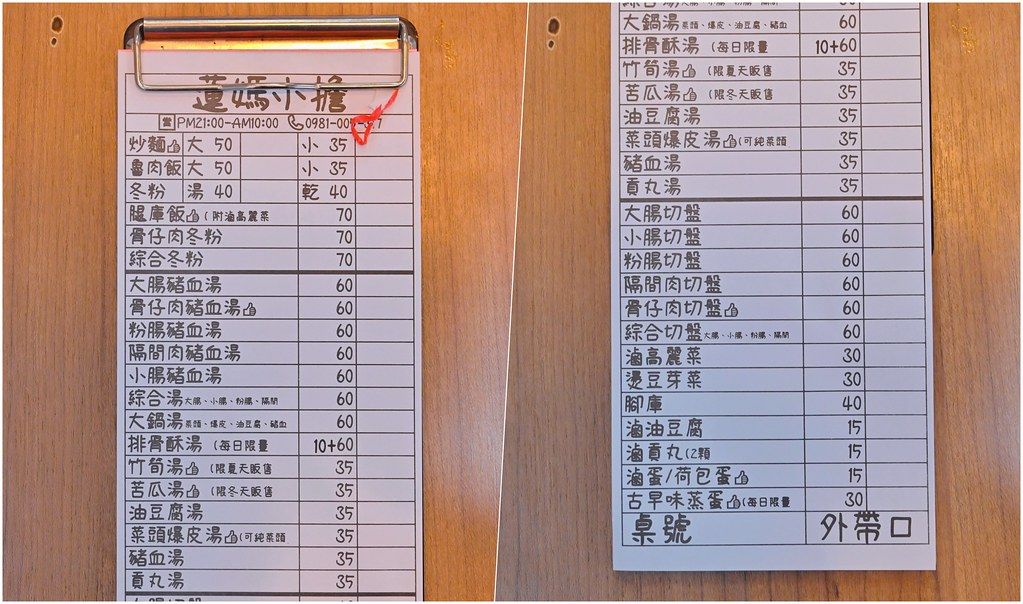 蓮媽小擔
營PM21:00-AM10:00 0981-00
炒麵 大 50 小 35
魯肉飯 大 50 小 35
冬粉 湯 40 乾 40
腿庫飯(附滷高麗菜 70
骨仔肉冬粉 70
綜合冬粉 70
大腸豬血湯 60
骨仔肉豬血湯 60
粉腸豬血湯 60
隔間肉豬血湯 60
小腸豬血湯 60
綜合湯大腸、小腸、粉腸、隔間 60
大鍋湯菜頭、爆皮、油豆腐、豬血 60
排骨酥湯 (每日限量 10+60
竹筍湯 (限夏天販售 35
苦瓜湯 (限冬天販售 35
油豆腐湯 35
菜頭爆皮湯(可純菜頭 35
豬血湯 35
貢丸湯 35
綜合湯大腸、小腸、粉腸、隔間 60
大鍋湯菜頭、爆皮、油豆腐、豬血 60
排骨酥湯 (每日限量 10+60
竹筍湯 (限夏天販售 35
苦瓜湯 (限冬天販售 35
油豆腐湯 35
菜頭爆皮湯(可純菜頭 35
豬血湯 35
貢丸湯 35
大腸切盤 60
小腸切盤 60
粉腸切盤 60
隔間肉切盤 60
骨仔肉切盤 60
綜合切盤大腸、小腸、粉腸、隔間 60
滷高麗菜 30
燙豆芽菜 30
腳庫 40
滷油豆腐 15
滷貢丸(2顆 15
滷蛋/荷包蛋 15
古早味蒸蛋(每日限量 30
桌號 外帶口